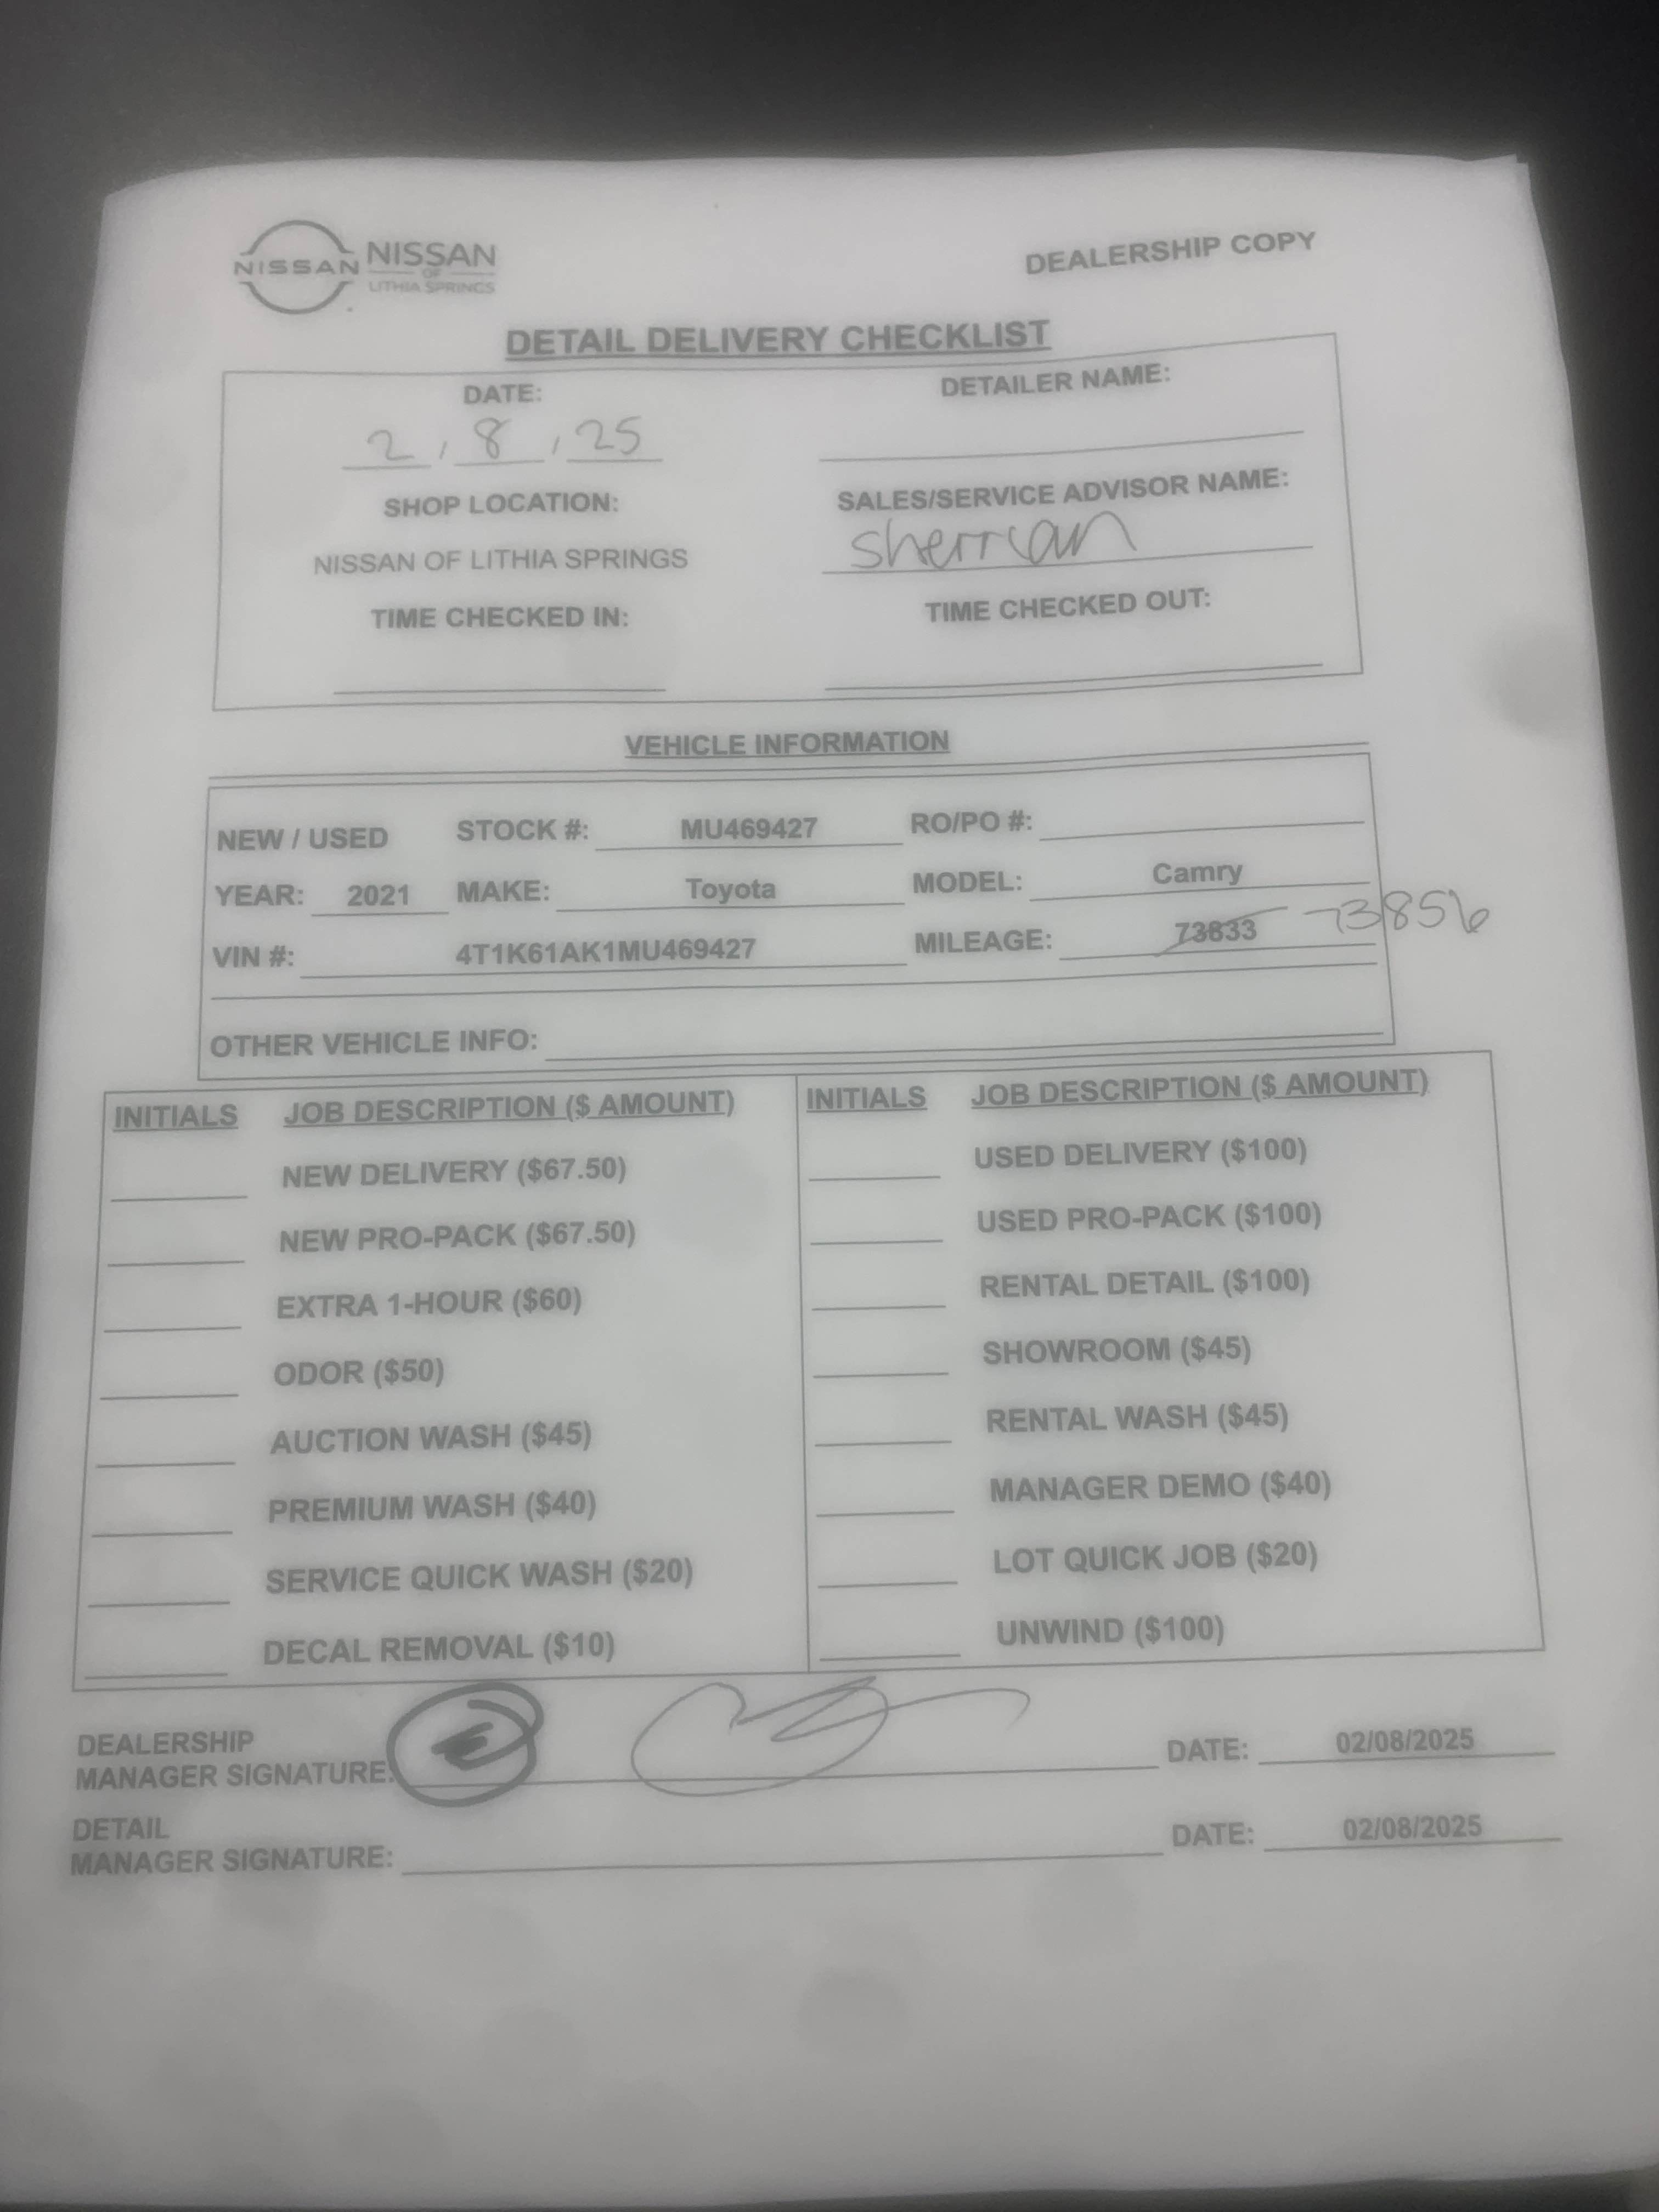 NISSAN NISSAN
OF
LITHIA SPRINGS
DEALERSHIP COPY
DETAIL DELIVERY CHECKLIST
DATE:
2 / 8 / 25
DETAILER NAME:
SHOP LOCATION:
NISSAN OF LITHIA SPRINGS
SALES/SERVICE ADVISOR NAME:
Sherrian
TIME CHECKED IN:
TIME CHECKED OUT:
VEHICLE INFORMATION
NEW / USED STOCK #: MU469427 RO/PO #:
YEAR: 2021 MAKE: Toyota MODEL: Camry
VIN #: 4T1K61AK1MU469427 MILEAGE: 73833 73856
OTHER VEHICLE INFO:
INITIALS JOB DESCRIPTION ($ AMOUNT)
NEW DELIVERY ($67.50)
NEW PRO-PACK ($67.50)
EXTRA 1-HOUR ($60)
ODOR ($50)
AUCTION WASH ($45)
PREMIUM WASH ($40)
SERVICE QUICK WASH ($20)
DECAL REMOVAL ($10)
INITIALS JOB DESCRIPTION ($ AMOUNT)
USED DELIVERY ($100)
USED PRO-PACK ($100)
RENTAL DETAIL ($100)
SHOWROOM ($45)
RENTAL WASH ($45)
MANAGER DEMO ($40)
LOT QUICK JOB ($20)
UNWIND ($100)
DEALERSHIP
MANAGER SIGNATURE: DATE: 02/08/2025
DETAIL
MANAGER SIGNATURE: DATE: 02/08/2025